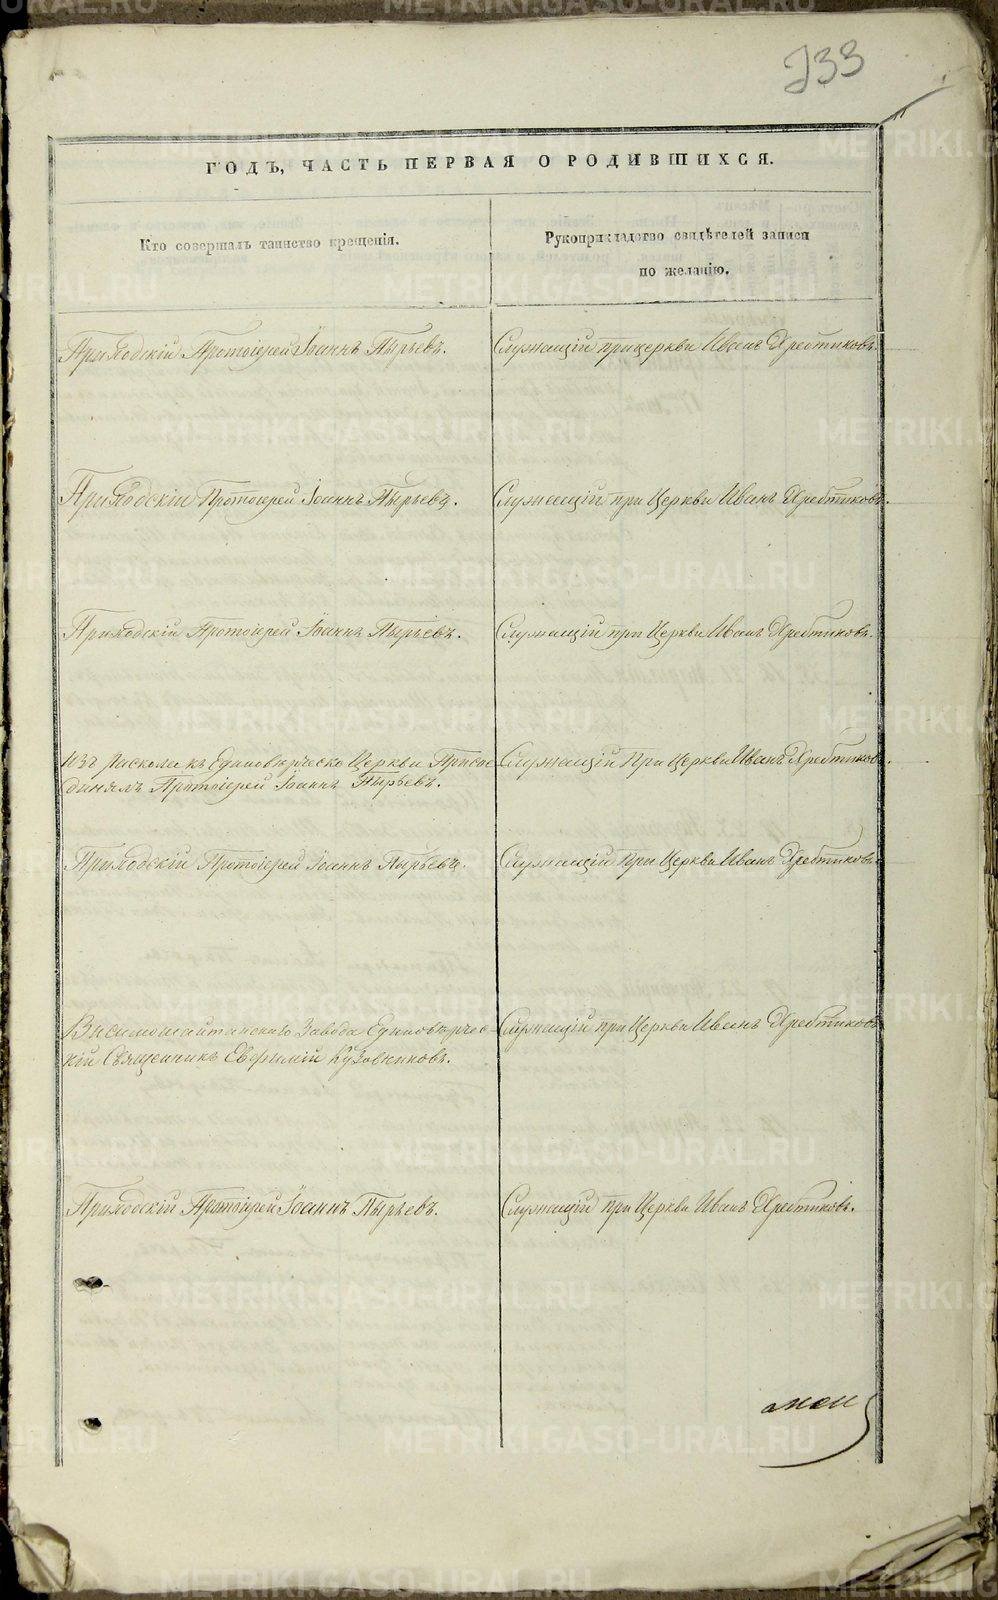 233
ГОДЪ, ЧАСТЬ ПЕРВАЯ О РОДИВШИХСЯ.
Кто совершалъ таинство крещенія.
Рукоприкладство свидѣтелей записи
по желанію.
Приходскій Протоіерей Іоаннъ Пырьевъ.
Служащій прицеркви Иванъ Хребтиковъ.
Приходскій Протоіерей Іоаннъ Пырьевъ.
Служащій при Церкви Иванъ Хребтиковъ.
Приходскій Протоіерей Іоаннъ Пырьевъ.
Служащій при Церкви Иванъ Хребтиковъ.
Изъ раскола къ Единовѣрческо Церкви Присое
динялъ Протоіерей Іоаннъ Пырьевъ.
Служащій При Церкви Иванъ Хребтиковъ.
Приходскій Протоіерей Іоаннъ Пырьевъ.
Служащій При Церкви Иванъ Хребтиковъ.
Висимошайтанскаго Завода Единовѣрчес-
кій Священникъ Евфимій Кузовниковъ.
Служащій при Церкви Иванъ Хребтиковъ
Приходскій Протоіерей Іоаннъ Пырьевъ.
Служащій при Церкви Иванъ Хребтиковъ.
METRIKI.GASO-URAL.RU